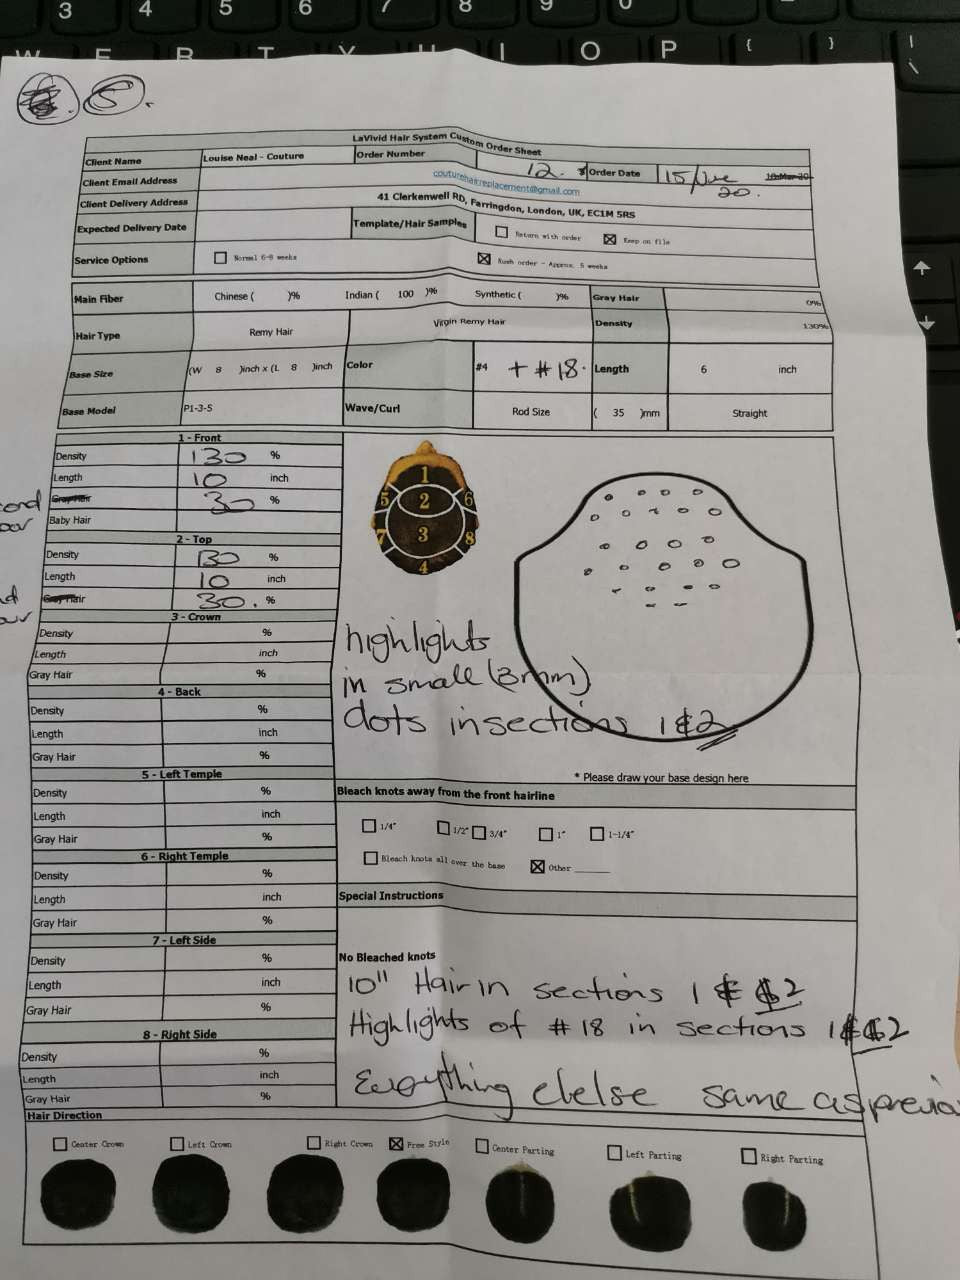 3 4 5 6 7 8 9 0
W E R T Y U I O P { } | \
5.
LaVivid Hair System Custom Order Sheet
Client Name Louise Neal - Couture Order Number 12. Order Date 15/June 20. 18-Mar-20
Client Email Address couturehairreplacement@gmail.com
Client Delivery Address 41 Clerkenwell RD, Farringdon, London, UK, EC1M 5RS
Expected Delivery Date Template/Hair Samples Return with order Keep on file
Service Options Normal 6-8 weeks Rush order - Approx. 5 weeks
Main Fiber Chinese ( )% Indian ( 100 )% Synthetic ( )% Gray Hair 0%
Hair Type Remy Hair Virgin Remy Hair Density 130%
Base Size (W 8 )inch x (L 8 )inch Color #4 + #18. Length 6 inch
Base Model P1-3-5 Wave/Curl Rod Size ( 35 )mm Straight
1 - Front
Density 130 %
Length 10 inch
Gray Hair 30 %
Baby Hair
2 - Top
Density 130 %
Length 10 inch
Gray Hair 30. %
3 - Crown
Density %
Length inch
Gray Hair %
4 - Back
Density %
Length inch
Gray Hair %
5 - Left Temple
Density %
Length inch
Gray Hair %
6 - Right Temple
Density %
Length inch
Gray Hair %
7 - Left Side
Density %
Length inch
Gray Hair %
8 - Right Side
Density %
Length inch
Gray Hair %
1
5 2 6
7 3 8
4
highlights
in small (3mm)
dots in sections 1 & 2
* Please draw your base design here
Bleach knots away from the front hairline
1/4" 1/2" 3/4" 1" 1-1/4"
Bleach knots all over the base Other ______
Special Instructions
No Bleached knots
10" Hair in sections 1 & 2
Highlights of #18 in sections 1 & 2
Everything else same as
Hair Direction
Center Crown Left Crown Right Crown Free Style Center Parting Left Parting Right Parting